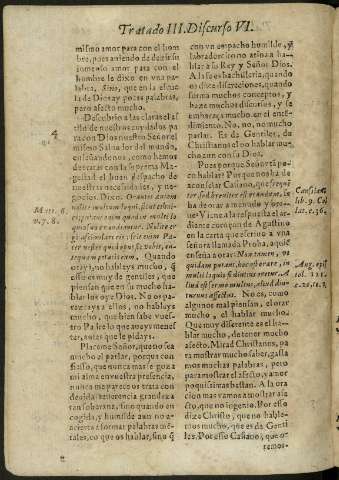 Tratado III. Discurso VI.
mismo amor para con el hom
bre, pues auiendo de dezir su
inmenso amor para con el
hombre le dixo en vna pa-
labra, sitio, que en la escue
la de Dios ay pocas palabras,
pero afecto mucho.
Descubrio a las claras el af
de nuestros cuydados pa
ra con Dios nuestro Señor el
mismo Saluador del mundo,
enseñandonos, como hemos
de tratar con la suprema Ma
gestad el buen despacho y de
nuestras necessidades, y ne-
gocios. Dixo. Orantes autem
nolite multum loqui, sicut ethni-
ci, putant enim quod in multilo
quio suo exaudiantur. Nolite er
go assimilari eis: scit enim Pa-
ter vester quid opus sit vobis, an-
tequam petatis eum. Quando
oray, no hableys mucho, q
esso es muy de gentiles, que
piensan que en su mucho ha
blar los oye Dios. No os pa-
rezcays a ellos, no hableys
mucho, que bien sabe vues-
tro Padre lo que aueys menes-
ter, antes que le pidays.
Plaçeme Señor, que no sea
mucho el parlar, porque con
fiasso, que nunca mas le goza
mi alma en vuestra presencia,
nunca me parece os trata con
deuida reuerencia grandeza
tan soberana, sino quando en
cogida, y humilde aun no a-
cierto a formar palabras mé-
tales, có que os hablar, sin q
con vn empacho humilde, y
labrador cito no atina a ha-
blar a su Rey y Señor Dios.
A la se es bachilleria, quando
os dize discreciones, quando
forma muchos conceptos, y
haze muchos discursos, y se
embaraça mucho en el en-
tendimiento. No, no, no mucho
parlar. Es de Gentiles, de
Christianos el no hablar mu-
cho aun con su Dios.
Pues porque Señor tá po-
co hablar? Por que nos ha de
aconsejar Casiano, que frequē
ter sed breuiter est orandum, in
ha de ser a menudo y bre-
ue? Viene a la respuesta el gra
ue ancore corazon de Agustino
en la carta que escriuo a vna
señora llamada Proba, aquié
enseña a orar: Non tamen, vt
quidam putant, hoc est orare, in
multiloquio si diutius oretur. A
liud est sermo multus, aliud diu-
turnus affectus. No es, como
algunos mal piensan, el orar
mucho, el hablar mucho.
Que muy diferente es el ha-
blar mucho, de tener mucho
afecto. Mirad Christianos, pa
ra mostrar mucho saber, gasta
mos muchas palabras, pero
para mostrar el afecto, y amor
poquissimas bastan. A la ora
cion mas vamos a tratar afec
to, que no ingenio. Por esso
dize Christo, que no hable-
mos mucho, que es de Genti
les. Por esso Casiano, que o-
remos-
4
Matt. 6.
v. 7. 8.
Casian.
lib. 9. Col
lat. c. 36.
Aug. epist
tol. 121.
c. 10. to. 2.